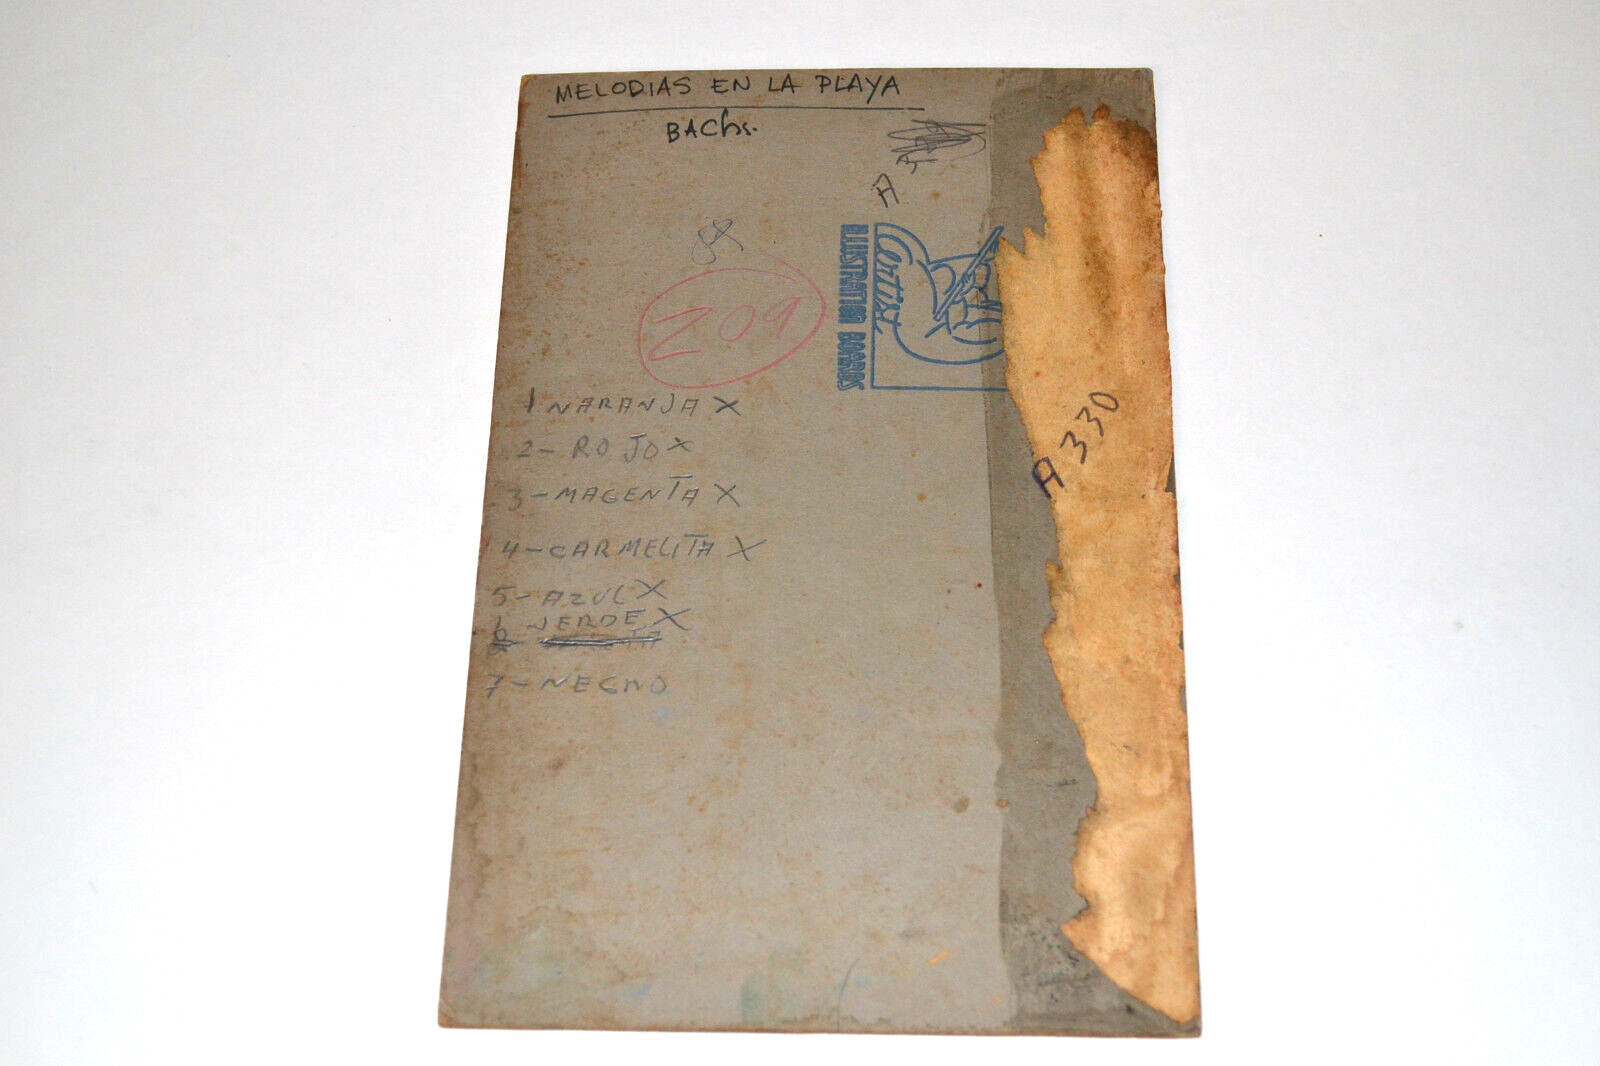 MELODIAS EN LA PLAYA
BAChs.
A
209
ILLUSTRATION BOARDS
1 NARANJA X
2- ROJO X
3- MAGENTA X
4- CARMELITA X
5- AZUL X
6 VERDE X
7- NEGRO
A 330